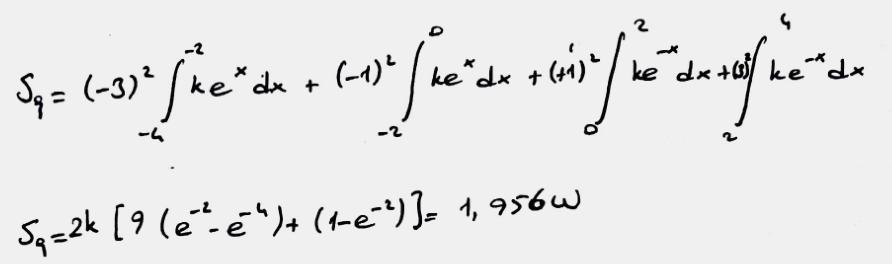 S_q = (-3)² ∫_{-4}^{-2} k e^x dx + (-1)² ∫_{-2}^{0} k e^x dx + (+1)² ∫_{0}^{2} k e^{-x} dx + (3)² ∫_{2}^{4} k e^{-x} dx
S_q = 2k [9 (e^{-2} - e^{-4}) + (1 - e^{-2})] = 1,956 W